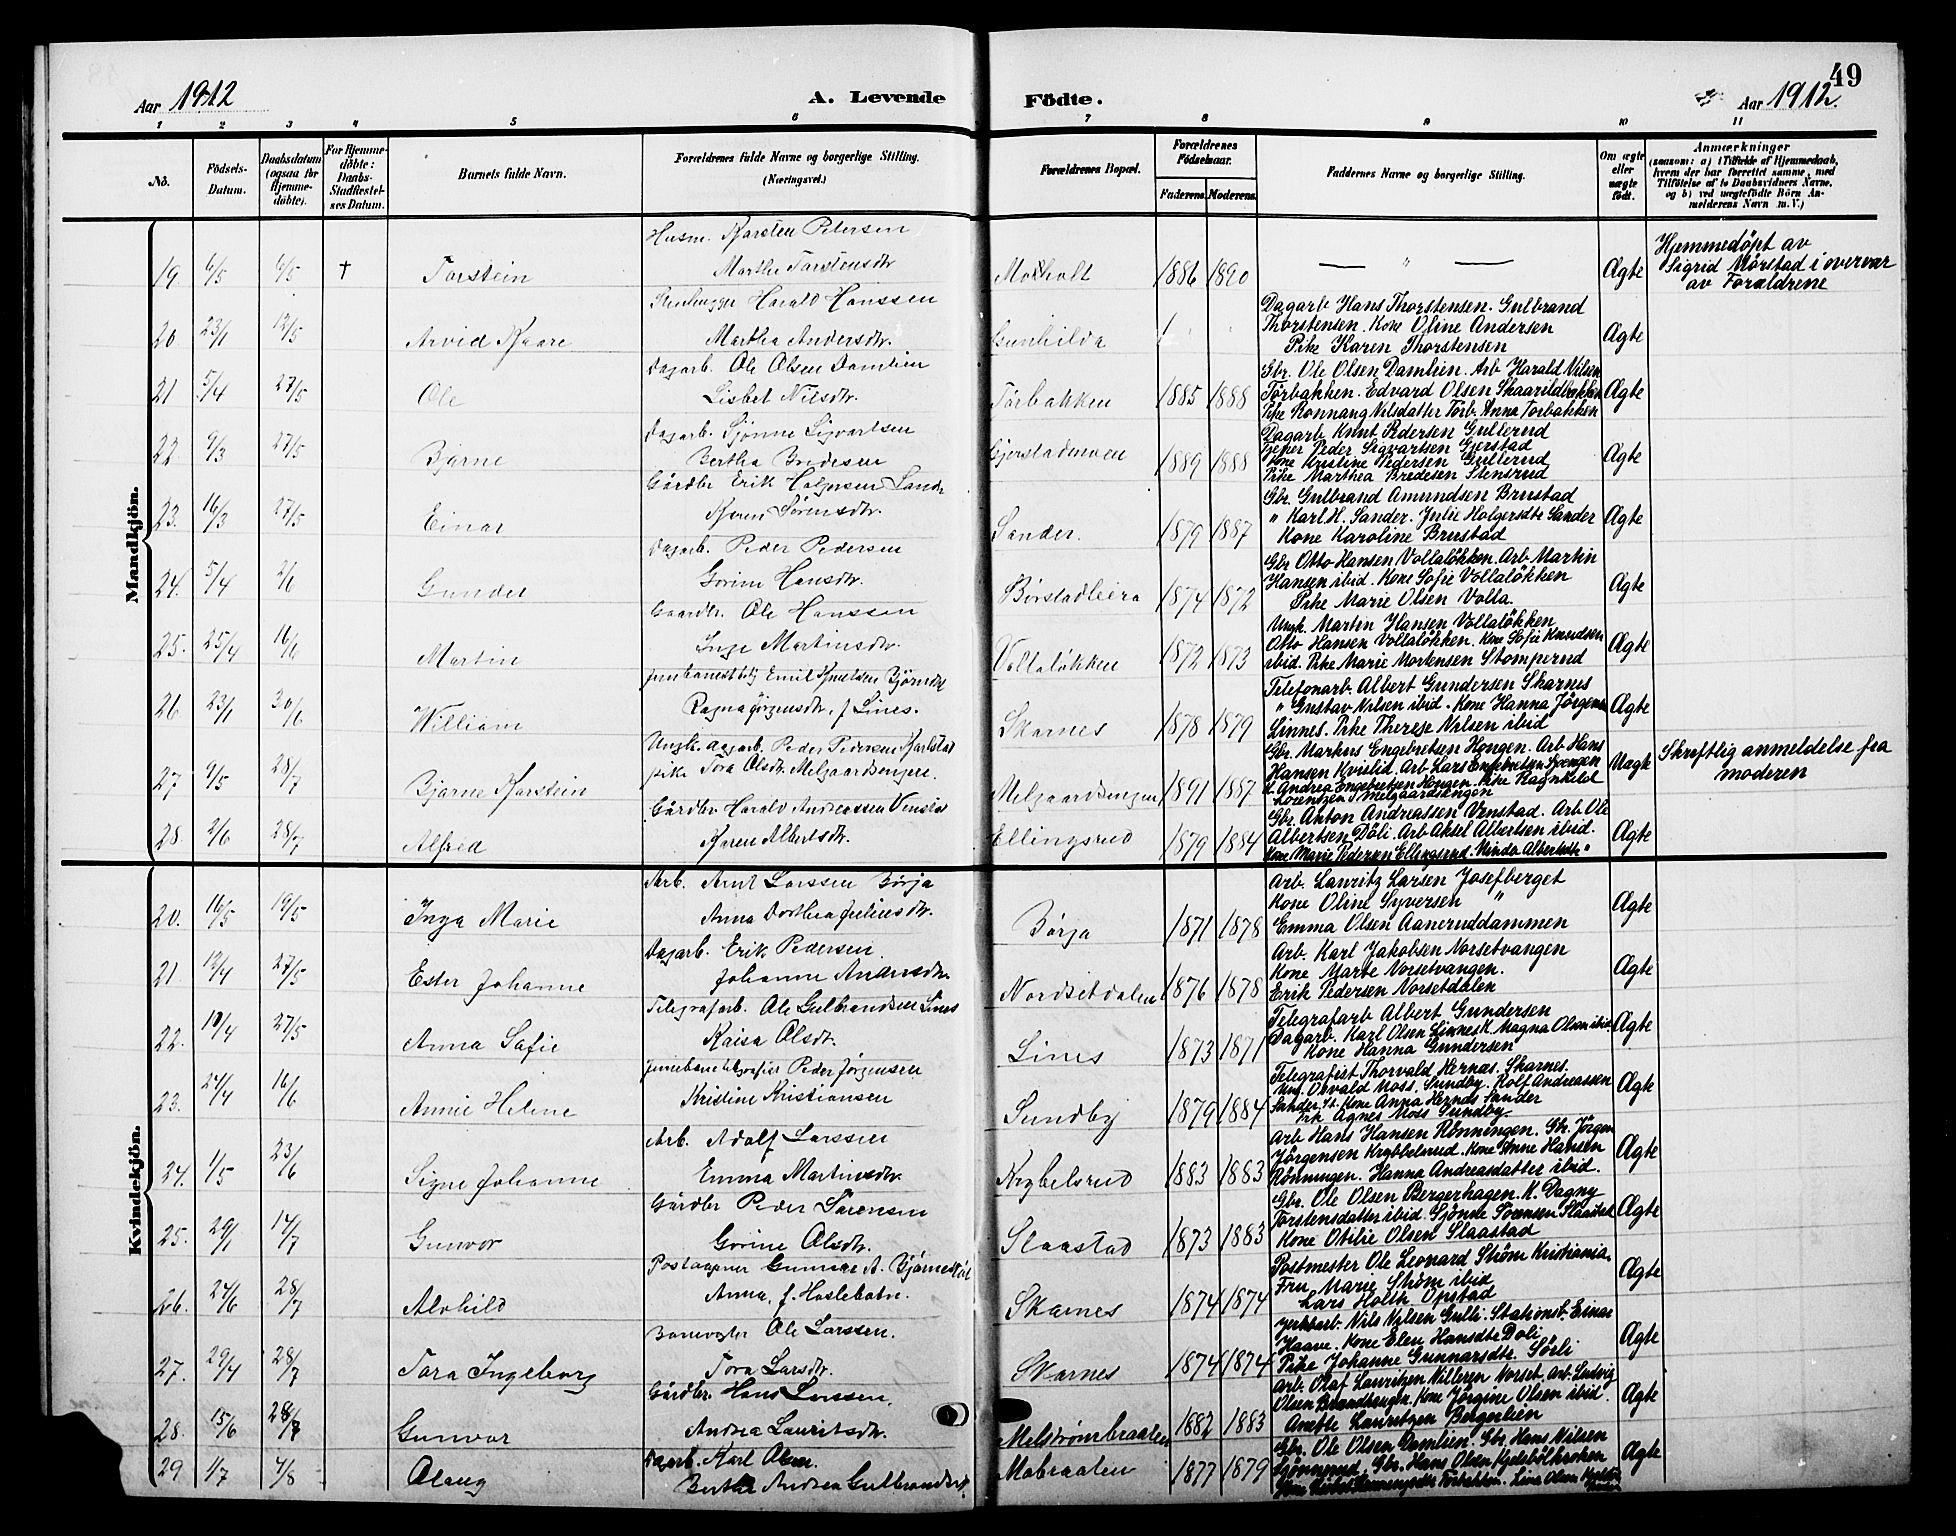 49
Aar 1912
A. Levende
Födte.
Aar 1912.
1 2 3 4 5 6 7 8 9 10 11
No.
Födsels-Datum.
Daabsdatum (ogsaa for Hjemme-döbte).
For Hjemme-döbte: Daabs-Stadfæstel-ses Datum.
Barnets fulde Navn.
Forældrenes fulde Navne og borgerlige Stilling. (Næringsvei.)
Forældrenes Bopæl.
Forældrenes Födselsaar.
Faderens. Moderens.
Faddernes Navne og borgerlige Stilling.
Om ægte eller uægte født.
Anmærkninger
(saasom: a) i Tilfælde af Hjemmedaab, hvem der har forrettet samme, med Tilföielse af to Daabsvidners Navne, og b) ved uægtefödte Börn Anmelderens Navn m. V.)
Mandkjön.
19 6/5 6/5 † Torstein
Husm. Karsten Petersen
Marthe Torstensdtr
Moholt 1886 1890 — " — Ægte
Hjemmedöpt av
Sigrid Mörstad i overvær
av Forældrene
20 23/1 12/5 Arvid Kaare
Stenhugger Harald Hanssen
Martha Andersdtr.
Gunhilda
Dagarb Hans Thorstensen. Gulbrand
Thorstensen. Kone Oline Andersen
Pike Karen Thorstensen
Ægte
21 5/4 27/5 Ole
Dagarb. Ole Olsen Damlien
Lisbet Nilsdtr.
Torbakken 1885 1888
Gbr. Ole Olsen Damlien. Arb Harald Nilsen
Torbakken. Edvard Olsen Skaarildbakken
Pike Ronnaug Nilsdatter Torb. Anna Torbakken
Ægte
22 9/3 27/5 Bjarne
Dagarb. Sjönne Sigvartsen
Bertha Bredesen
Gjerstadmoen 1889 1888
Dagarb Knut Pedersen Gullerud
Peder Sigvartsen Gjerstad
Kone Kristine Pedersen Gullerud
Pike Marthea Bredesen Stensrud
Ægte
23. 16/3 27/5 Einar
Gårdbr Erik Holgersen Sander
Karen Sörensdtr.
Sander. 1879 1887
Gbr. Gulbrand Amundsen Brustad
" Karl H. Sander. Julie Holgersdtr Sander
Kone Karoline Brustad
Ægte
24. 5/4 2/6 Gunder
Dagarb. Peder Pedersen
Gorine Hansdtr.
Börstadleira 1874 1872
Gbr Otto Hansen Vollalökken. Arb Martin
Hansen ibid. Kone Sofie Vollalökken
Pike Marie Olsen Volla.
Ægte
25. 25/4 16/6 Martin
Gaardbr. Ole Hanssen
Inge Martinsdtr.
Vollalökken 1872 1873
Ungk. Martin Hansen Vollalökken
Otto Hansen Vollalökken. Kone Sofie Knudsen
ibid. Pike Marie Mortensen Stomperud
Ægte
26. 23/1 30/6 William
Emil Knutsen Björnstd
Ragna Jörgensdtr. f. Lines.
Skarnes 1878 1879
Telefonarb. Albert Gundersen Skarnes
" Gustav Nilsen ibid. Kone Hanna Jörgensen
Linnes. Pike Therese Nilsen ibid
Ægte
27 9/5 28/7 Bjarne Karstein
Ungk. dagarb. Peder Pedersen Karlstad
pike Tora Olsdtr. Melgaardsengen.
Melgaardsengen 1891 1887
Gbr. Markus Engebretsen Hongen. Arb Hans
Hansen Kvislid. Arb Lars Engebretsen Svengen
K. Andrea Engebretsen Hongen. Pike Ragnhild
Lorentzen S. Melgaardsengen
Uægte
Skriftlig anmeldelse fra
moderen
28. 2/6 28/7 Alfred
Gårdbr. Harald Andreassen Venstad
Karen Albertsdtr.
Ellingsrud 1879 1884
Gbr. Anton Andreassen Venstad. Arb Ole
Albertsen Döli. Arb Aksel Albertsen ibid.
Kone Marie Pedersen Ellingsrud. Minda Albertsdtr "
Ægte
Kvindekjön.
20. 16/5 19/5 Inga Marie
Arb. Arnt Larssen Börja
Anna Dorthea Juliusdtr.
Börja 1871 1878
Arb. Lauritz Larsen Josefberget
Kone Oline Syversen "
Emma Olsen Aaneruddammen
Ægte
21 12/4 27/5 Ester Johanne
Dagarb. Erik Pedersen.
Johanne Andersdtr.
Nordsetdalen 1876 1878
Arb. Karl Jakobsen Norsetvangen
Kone Marte Norsetvangen.
Erik Pedersen Norsetdalen
Ægte
22. 10/4 27/5 Anna Sofie
Telegrafarb. Ole Gulbrandsen Lines
Kaisa Olsdtr.
Lines 1873 1871
Telegrafarb Albert Gundersen
Dagarb. Karl Olsen Linnes K. Magna Olsen ibid
Kone Hanna Gundersen
Ægte
23. 24/4 16/6 Annie Helene
Jernbanetelegrafist Peder Jörgensen
Kristine Kristiansen
Sundby 1879 1884
Telegrafist Thorvald Hernæs. Skarnes.
Ungk. Osvald Moss. Sundby. Rolf Andreassen
Sander st. Kone Anna Hernæs Sander
Pik. Agnes Moss Sundby
Ægte
24. 1/5 23/6 Signe Johanne
Arb. Adolf Larssen
Emma Martinsdtr.
Krybelsrud 1883 1883
Arb Hans Hansen Rönningen. Gb. Jörgen
Jörgensen Krybbelsrud. Kone Anne Hansen
Rönningen. Hanna Andreasdatter ibid.
Ægte
25. 29/1 14/7 Gunvor
Gårdbr Peder Sörensen
Gorine Olsdtr.
Slaastad 1873 1883
Gbr. Ole Olsen Bergerhagen. K. Dagny
Torstensdatter ibid. Sjönne Sörensen Slaastad
Kone Otilie Olsen Slaastad
Ægte
26. 24/6 28/7 Alvhild
Postaapner Gunnar A. Björnestöl
Anna, f. Haslebakve.
Skarnes 1874 1874
Postmester Ole Leonard Ström Kristiania.
Fru Marie Ström ibid
Lars Holth Opstad
Ægte
27. 29/4 28/7 Tora Ingeborg
Banevogter Ole Larssen.
Tora Larsdtr.
Skarnes 1874 1874
Jernbarb. Nils Nilsen Gulli. Stationsb. Einar
Haave. Kone Elen Hansdtr Doli
Pike Johanne Gunnarsdtr. Sörli
Ægte
28. 15/6 28/7 Gunvor
Gårdbr. Hans Larssen.
Andrea Lauritsdtr.
Melströmbraaten 1882 1883
Arb. Olaf Lauritzen Nilleren Norset. Arb. Ludvig
Olsen Brandhenget. Kone Jörgine Olsen ibid.
Anette Lauritzen Bergerlien
Ægte
29 1/7 4/8 Olaug
Dagarb. Karl Olsen.
Berthe Andrea Gulbrandsdtr.
Mobraaten 1877 1879
Gbr. Ole Olsen Damlien. Gbr. Hans Nilsen
Sjönnerud. Gbr. Hans Olsen Kjelsbölkroken
Ægte